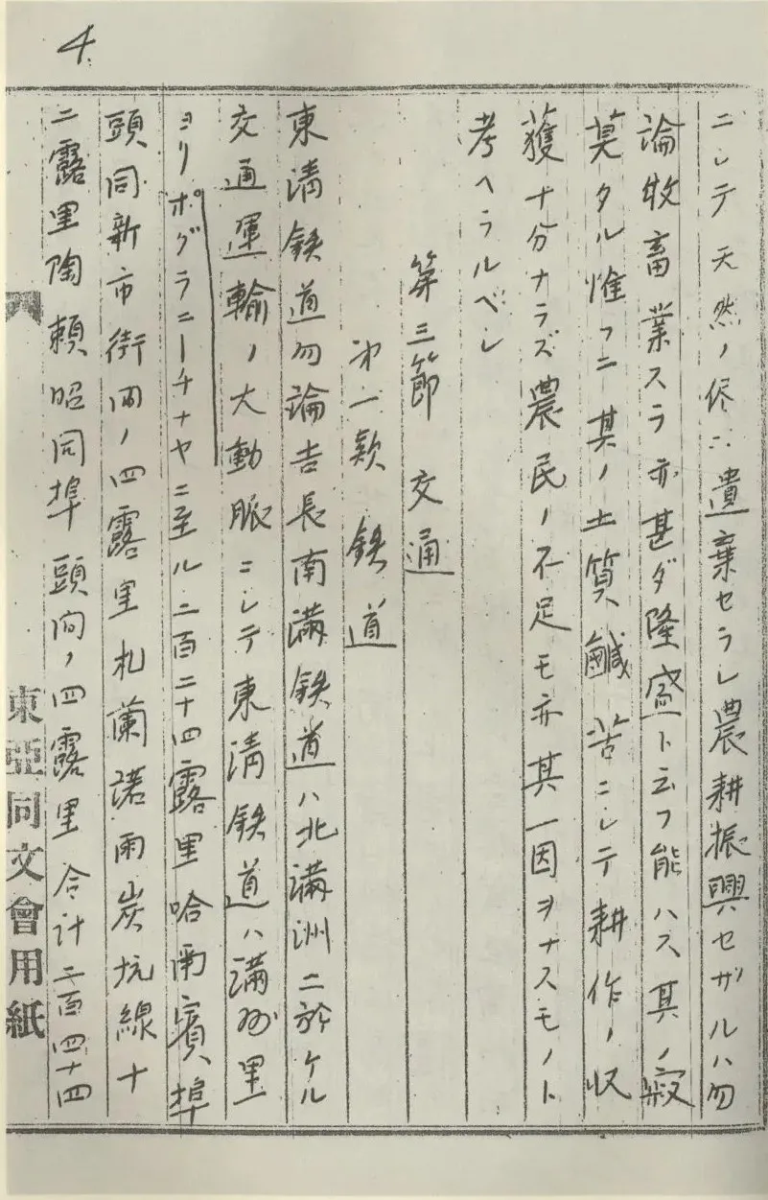 4
ニシテ天然ノ侭ニ遺棄セラレ農耕振興セザルハ勿
論牧畜業スラ亦甚ダ隆盛ト云フ能ハス其ノ寂
莫タル惟フニ其ノ土質鹹苦ニシテ耕作ノ収
獲十分ナラズ農民ノ不足モ亦其一因ヲナスモノト
考ヘラルベシ
第三節 交通
第一款 鉄道
東清鉄道勿論吉長南満鉄道ハ北満洲ニ於ケル
交通運輸ノ大動脈ニシテ東清鉄道ハ満洲里
ヨリポグラニーチナヤニ至ル二百二十四露里哈爾賓埠
頭同新市街間ノ四露里札蘭諾爾炭坑線十
二露里陶頼昭同埠頭间ノ四露里合计二百四十四
東亞同文會用紙